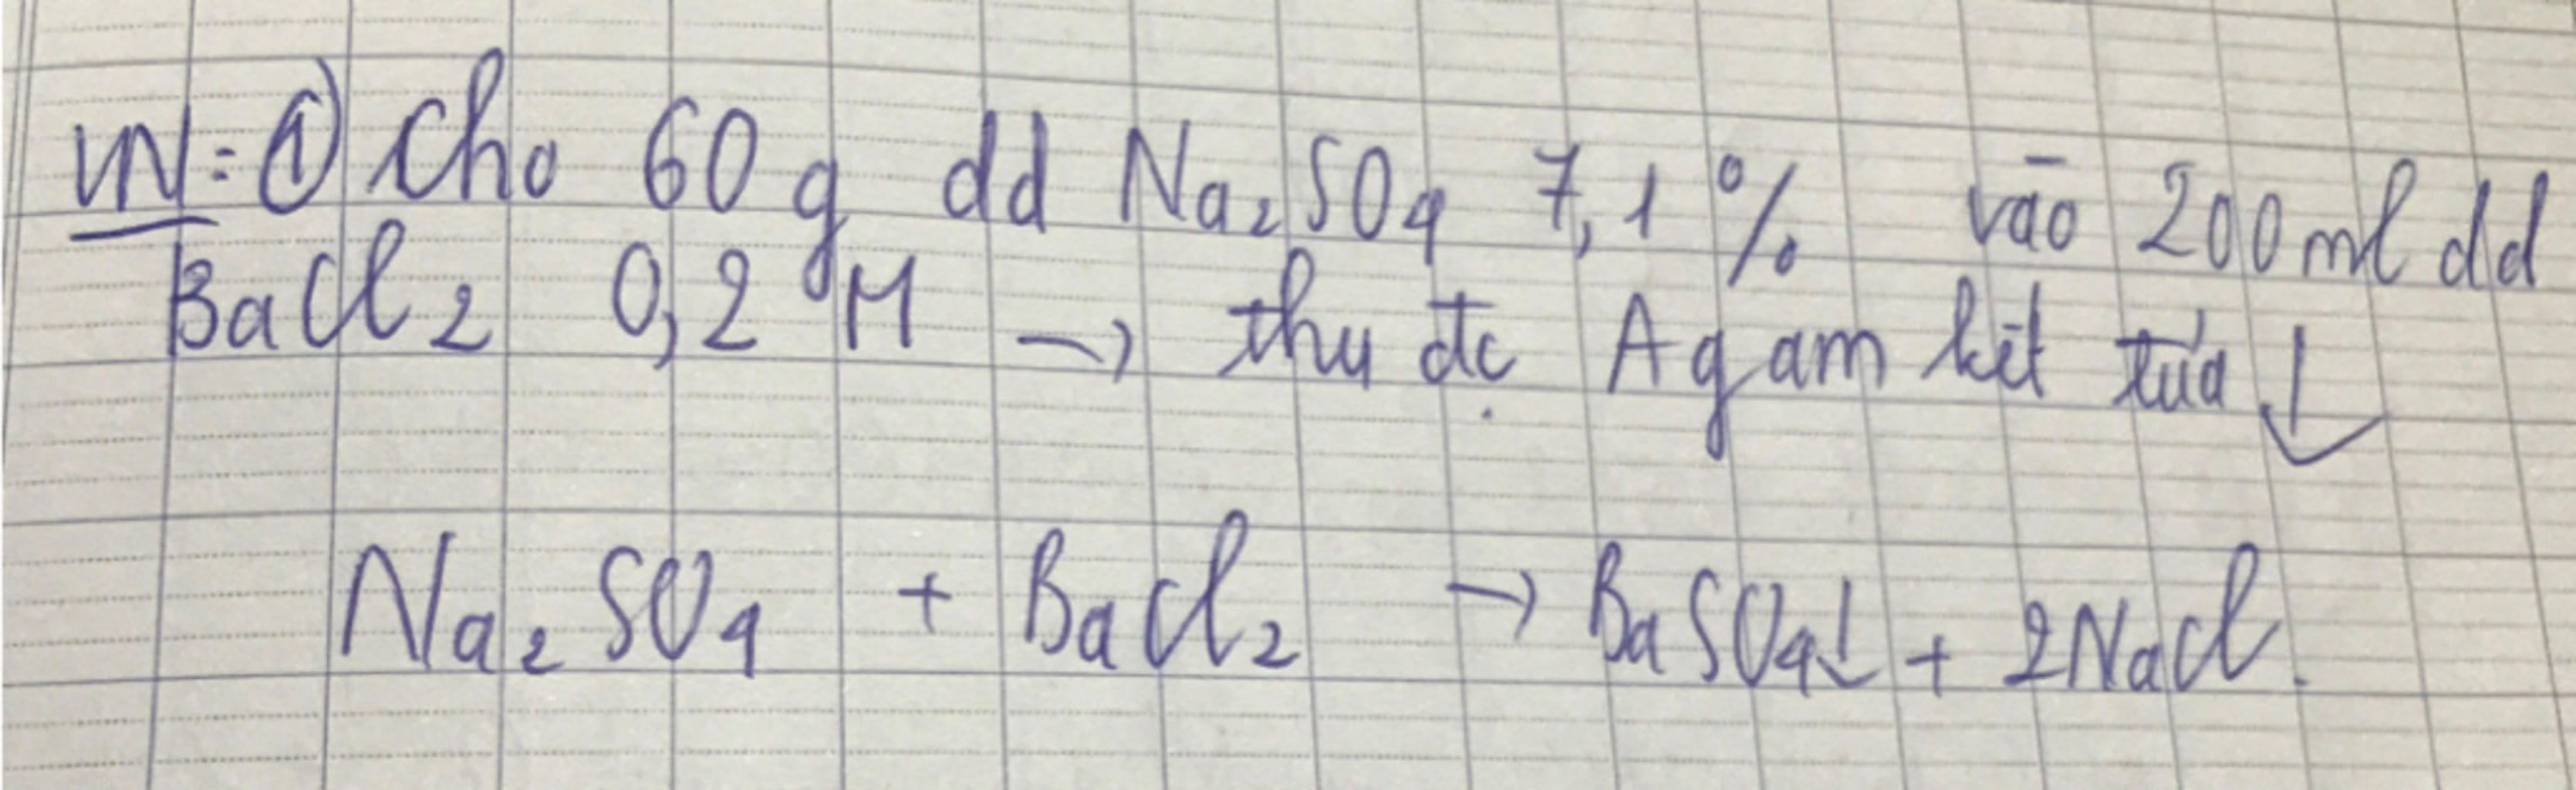 VN: ① Cho 60 g dd Na₂SO₄ 7,1 % vào 200 ml dd
BaCl₂ 0,2 M → thu đc A gam kết tủa ↓
Na₂SO₄ + BaCl₂ → BaSO₄↓ + 2NaCl.